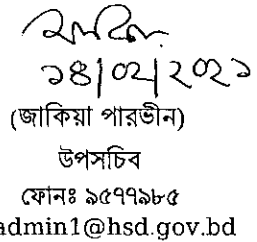 ১৪/০২/২০২১
(জাকিয়া পারভীন)
উপসচিব
ফোনঃ ৯৫৭৭৯৮৫
admin1@hsd.gov.bd